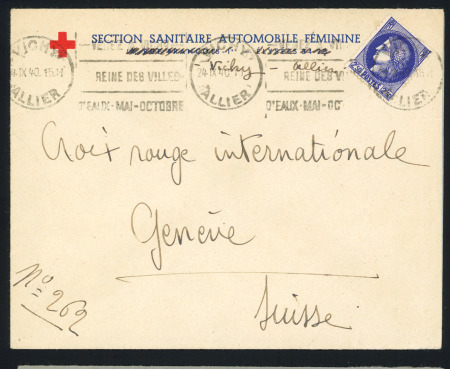 SECTION SANITAIRE AUTOMOBILE FÉMININE
Vichy - Allier -
VICHY
24 IX 40.
ALLIER
REINE DES VILLES
D'EAUX-MAI-OCTOBRE
24 IX 40
ALLIER
REINE DES VILLES
D'EAUX-MAI-OCT
ALLIER
Croix rouge internationale
Genève
Suisse
No 262